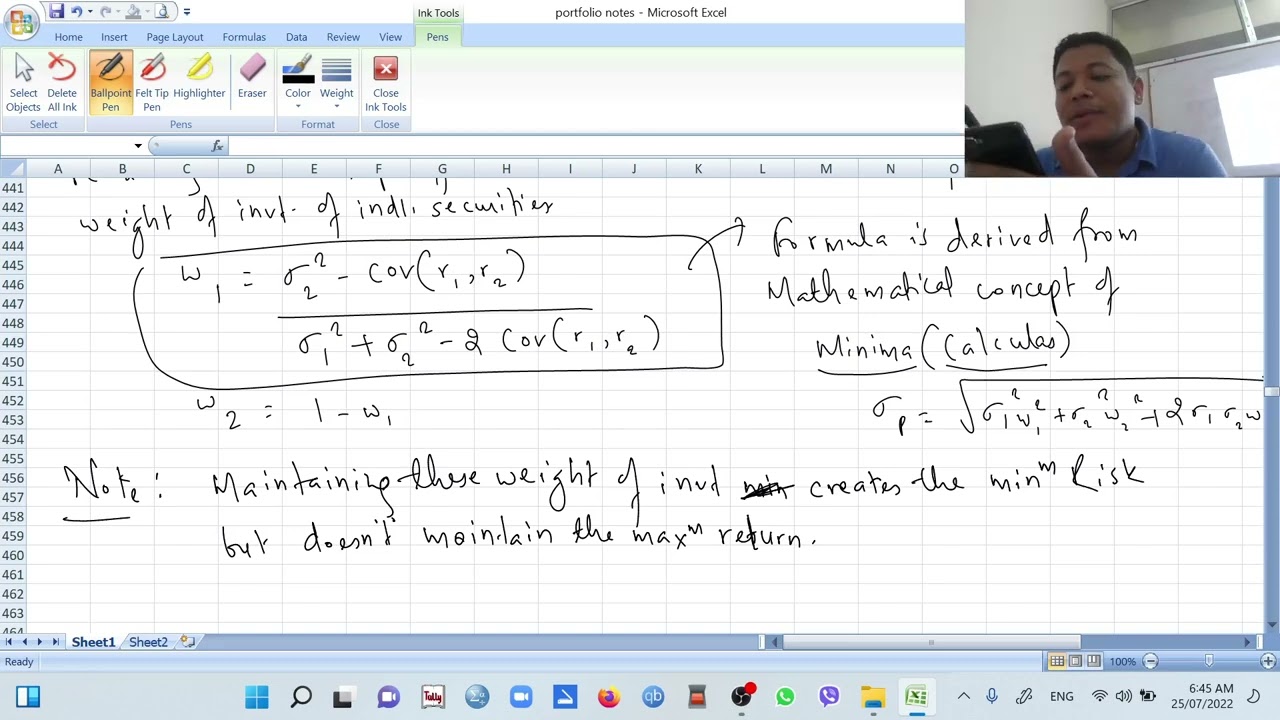 Ink Tools
portfolio notes - Microsoft Excel
Home Insert Page Layout Formulas Data Review View Pens
Select Objects
Delete All Ink
Ballpoint Pen
Felt Tip Pen
Highlighter
Eraser
Color
Weight
Close Ink Tools
Select Pens Format Close
fx
A B C D E F G H I J K L M N O
441
442
443
444
445
446
447
448
449
450
451
452
453
454
455
456
457
458
459
460
461
462
463
464
weight of invt. of indl. securities
w1 = σ2² - Cov(r1,r2)
σ1² + σ2² - 2 Cov(r1,r2)
w2 = 1 - w1
Formula is derived from
Mathematical concept of
Minima (Calculas)
σp = √σ1²w1² + σ2²w2² + 2σ1σ2w
Note: Maintaining these weight of invt creates the minᵐ Risk
but doesn't maintain the maxᵐ return.
Sheet1 Sheet2
Ready 100%
Tally
qb
ENG
6:45 AM
25/07/2022